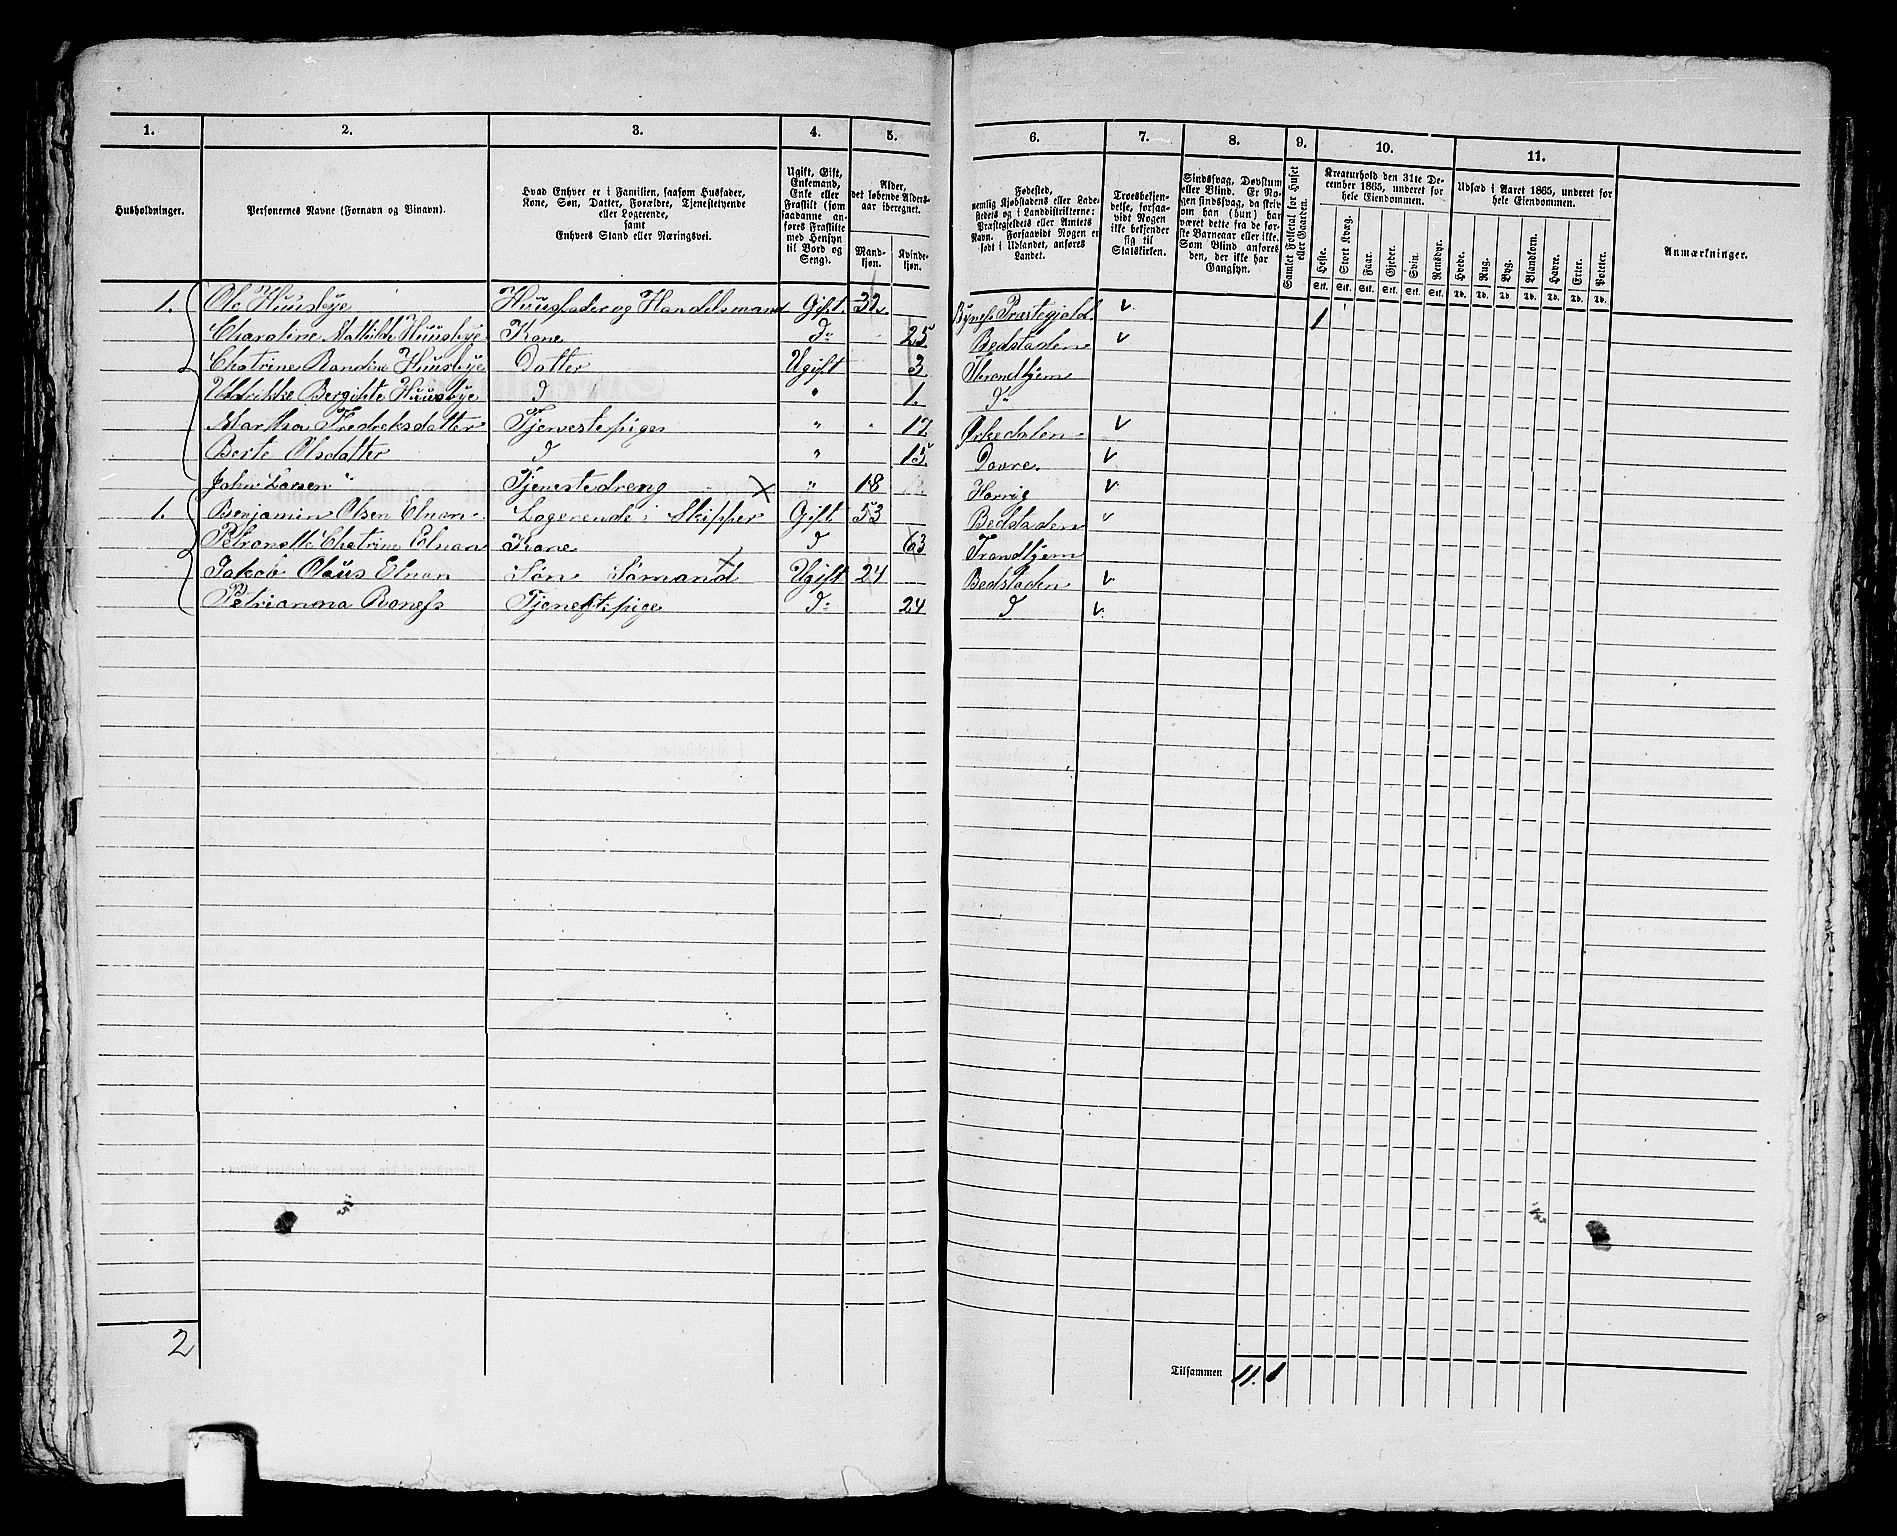 1. 2. 3. 4. 5. 6. 7. 8. 9. 10. 11.
Husholdninger.
Personernes Navne (Fornavn og Binavn).
Hvad Enhver er i Familien, saasom Husfader,
Kone, Søn, Datter, Forældre, Tjenestetyende
eller Logerende,
samt
Enhvers Stand eller Næringsvei.
Ugift, Gift,
Enkemand,
Enke eller
Fraskilt (som
saadanne an-
føres Fraskilte
med Hensyn
til Bord og
Seng).
Alder,
det løbende Alders-
aar iberegnet.
Mand-
kjøn.
Kvinde-
kjøn.
Fødested,
nemlig Kjøbstadens eller Lade-
stedets og i Landdistrikterne:
Præstegjeldets eller Amtets
Navn. Forsaavidt Nogen er
født i Udlandet, anføres
Landet.
Troesbekjen-
delse, forsaa-
vidt Nogen
ikke bekjender
sig til
Statskirken.
Sindssvag, Døvstum
eller Blind. Er No-
gen sindssvag, da skriv
om han (hun) har
været dette fra de før-
ste Barneaar eller ikke.
Som Blind anføres
den, der ikke har
Gangsyn.
Samlet Folketal for Huset
eller Gaarden.
Kreaturhold den 31te De-
cember 1865, underet for
hele Eiendommen.
Heste. Stort Kvæg. Faar. Gjeder. Svin. Rensdyr.
Stk. Stk. Stk. Stk. Stk. Stk.
Udsæd i Aaret 1865, underet for
hele Eiendommen.
Hvede. Rug. Byg. Blandkorn. Havre. Erter. Poteter.
Td. Td. Td. Td. Td. Td. Td.
Anmærkninger.
1. Ole Huusbye Huusfader og Handelsmand Gift 32. Bynes Præstegjeld v 1
Charoline Mathilde Huusbye Kone do 25 Bedstaden v
Chatrine Randine Huusbye Datter Ugift 3 Throndhjem
Uldrikke Bergitte Huusbye d " 1. do
Martha Fredreksdatter Tjenestepige " 17 Ørkedalen v
Berte Olsdatter d " 15 Dovre v
John Larsen Tjenestedreng " 18 v
1. Benjamin Olsen Elnan Logerende: Skipper Gift 53 Bedstaden v
Chatrine Elnan Kone d 63 Trondhjem
Jakob Olaus Elnan Søn Sømand Ugift 24 Bedstaden v
Petrianna Tjenestepige do 24 d v
2
Tilsammen 11. 1